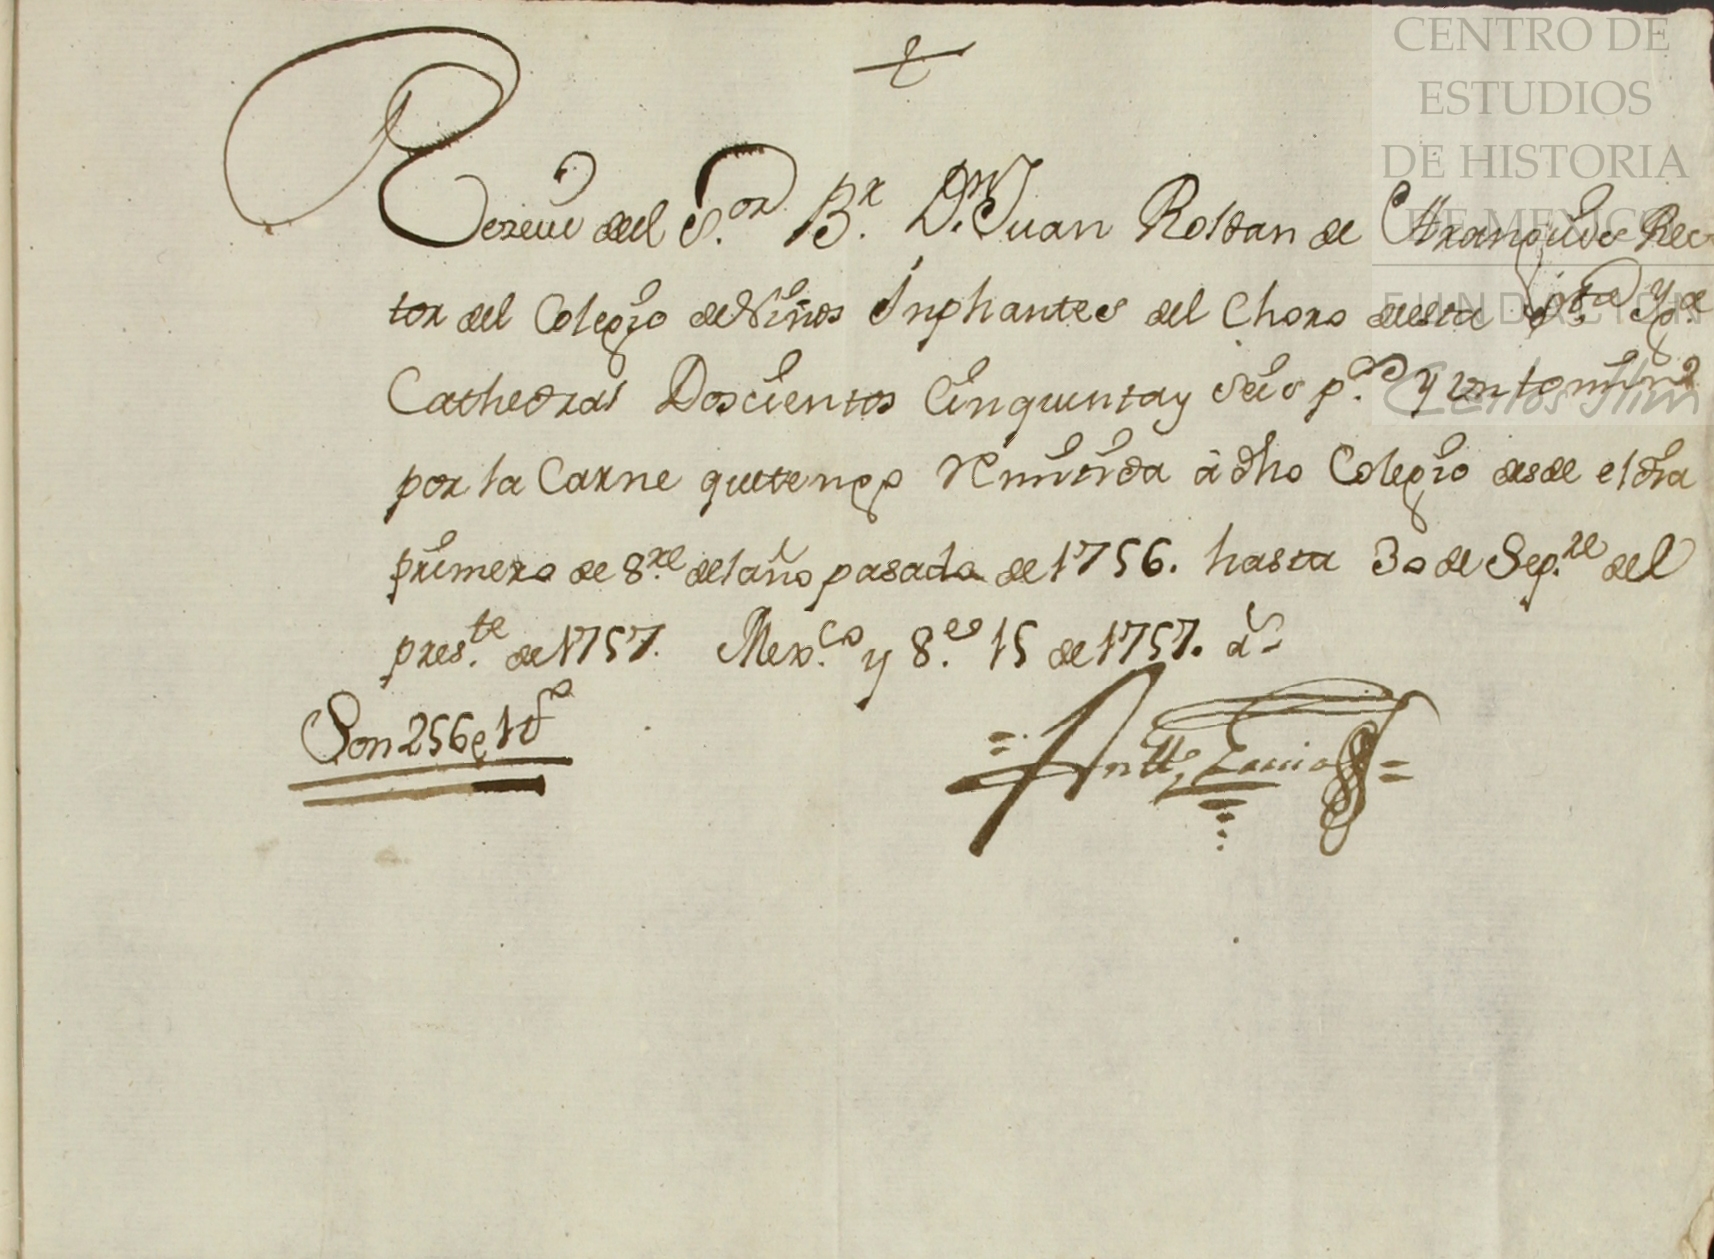 CENTRO DE
ESTUDIOS
DE HISTORIA
DE MEXICO
FUNDACIÓN
Carlos Slim
Reseui del S.or B.r D.n Juan Roldan de Aranguis Rec
tor del Colegio de Niños Inphantes del Choro desta S.ta Yg.a
Cathedral Doscientos Cinquenta y Seis p.s y un tomin
por la Carne que tengo remitida â dho Colegio desde el dia
primero de 8.re del año pasado de 1756. hasta 30 de Sep.re del
pres.te de 1757. Mex.co y 8.e 15 de 1757. a.s
Son 256 p 1 t.s
Antt.o